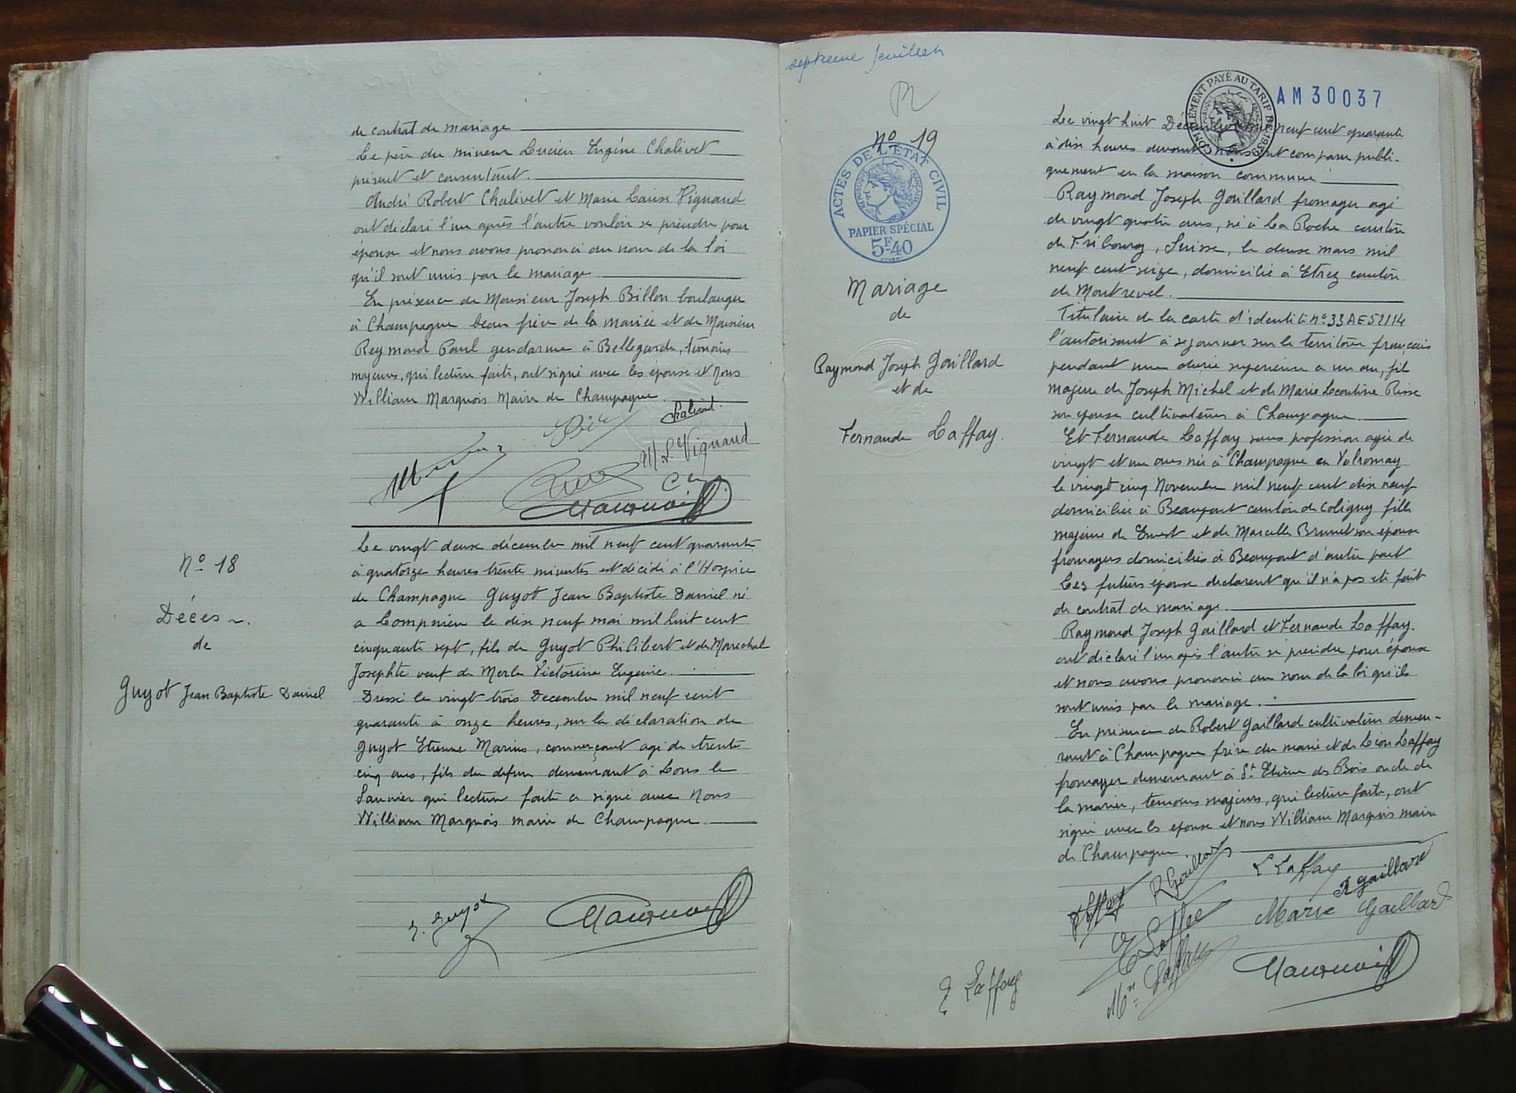 de contrat de mariage
Le père du mineur Lucien Eugène Chalivet
présent et consentant.
André Robert Chalivet et Marie Louise Vignaud
ont déclaré l'un après l'autre vouloir se prendre pour
épouse et nous avons prononcé au nom de la loi
qu'il sont unis par le mariage
En présence de Monsieur Joseph Billon boulanger
à Champagne beau frère de la mariée et de Monsieur
Reymond Paul gendarme à Bellegarde, témoins
majeurs, qui lecture faite, ont signé avec les épouse et Nous
William Marquois Maire de Champagne
Chalivet
M L Vignaud
Marquois
Nº 18
Décès
de
Guyot Jean Baptiste Daniel
Le vingt deux décembre mil neuf cent quarante
à quatorze heures trente minutes est décédé à l'Hospice
de Champagne Guyot Jean Baptiste Daniel né
a le dix neuf mai mil huit cent
cinquante sept, fils de Guyot Philibert et de Marechal
Josephte veuf de Merle Victorine Eugenie.
Dressé le vingt trois Decembre mil neuf cent
quarante à onze heures, sur la déclaration de
Guyot Etienne Marius, commerçant agé de trente
cinq ans, fils du defun demeurant à Lons le
Saunier qui lecture faite a signé avec Nous
William Marquois maire de Champagne
E. Guyot
Marquois
septieme feuillet
Nº 19
ACTES DE L'ETAT CIVIL
PAPIER SPÉCIAL
5F40
Mariage
de
Raymond Joseph Gaillard
et de
Fernande Laffay.
COMPLÉMENT PAYÉ AU TARIF DE 1939
AM 30037
Le vingt huit Décembre mil neuf cent quarante
à dix heures devant nous ont comparu publi-
quement en la maison commune
Raymond Joseph Gaillard fromager agé
de vingt quatre ans, né à La Roche canton
de Fribourg, Suisse, le deux mars mil
neuf cent seize, domicilié à Etrez canton
de Montrevel.
Titulaire de la carte d'identité nº 33AE52114
l'autorisant à sejourner sur le territoire français
pendant une durée superieure a un an, fils
majeur de Joseph Michel et de Marie Leontine Risse
son epouse cultivateurs à Champagne
Et Fernande Laffay sans profession agée de
vingt et un ans née à Champagne en Valromey
le vingt cinq Novembre mil neuf cent dix neuf
domiciliée à Beaupont canton de Coligny fille
majeure de Ernest et de Marcelle Brunet son épouse
fromagers domiciliés à Beaupont d'autre part
Les futurs épouse declarent qu'il n'a pas été fait
de contrat de mariage.
Raymond Joseph Gaillard et Fernande Laffay.
ont déclaré l'un après l'autre se prendre pour épouse
et nous avons prononcé au nom de la loi qu'ils
sont unis par le mariage.
En présence de Robert Gaillard cultivateur demeu-
rant à Champagne frère du marié et de Léon Laffay
fromager demeurant à St Etienne du Bois oncle de
la mariée, temoins majeurs, qui lecture faite, ont
signé avec les epouse et nous William Marquois maire
de Champagne
F Laffay R Gaillard
L Laffay
R Gaillard
E Laffay
Marie Gaillard
Mme Laffay
E Laffay
Marquois